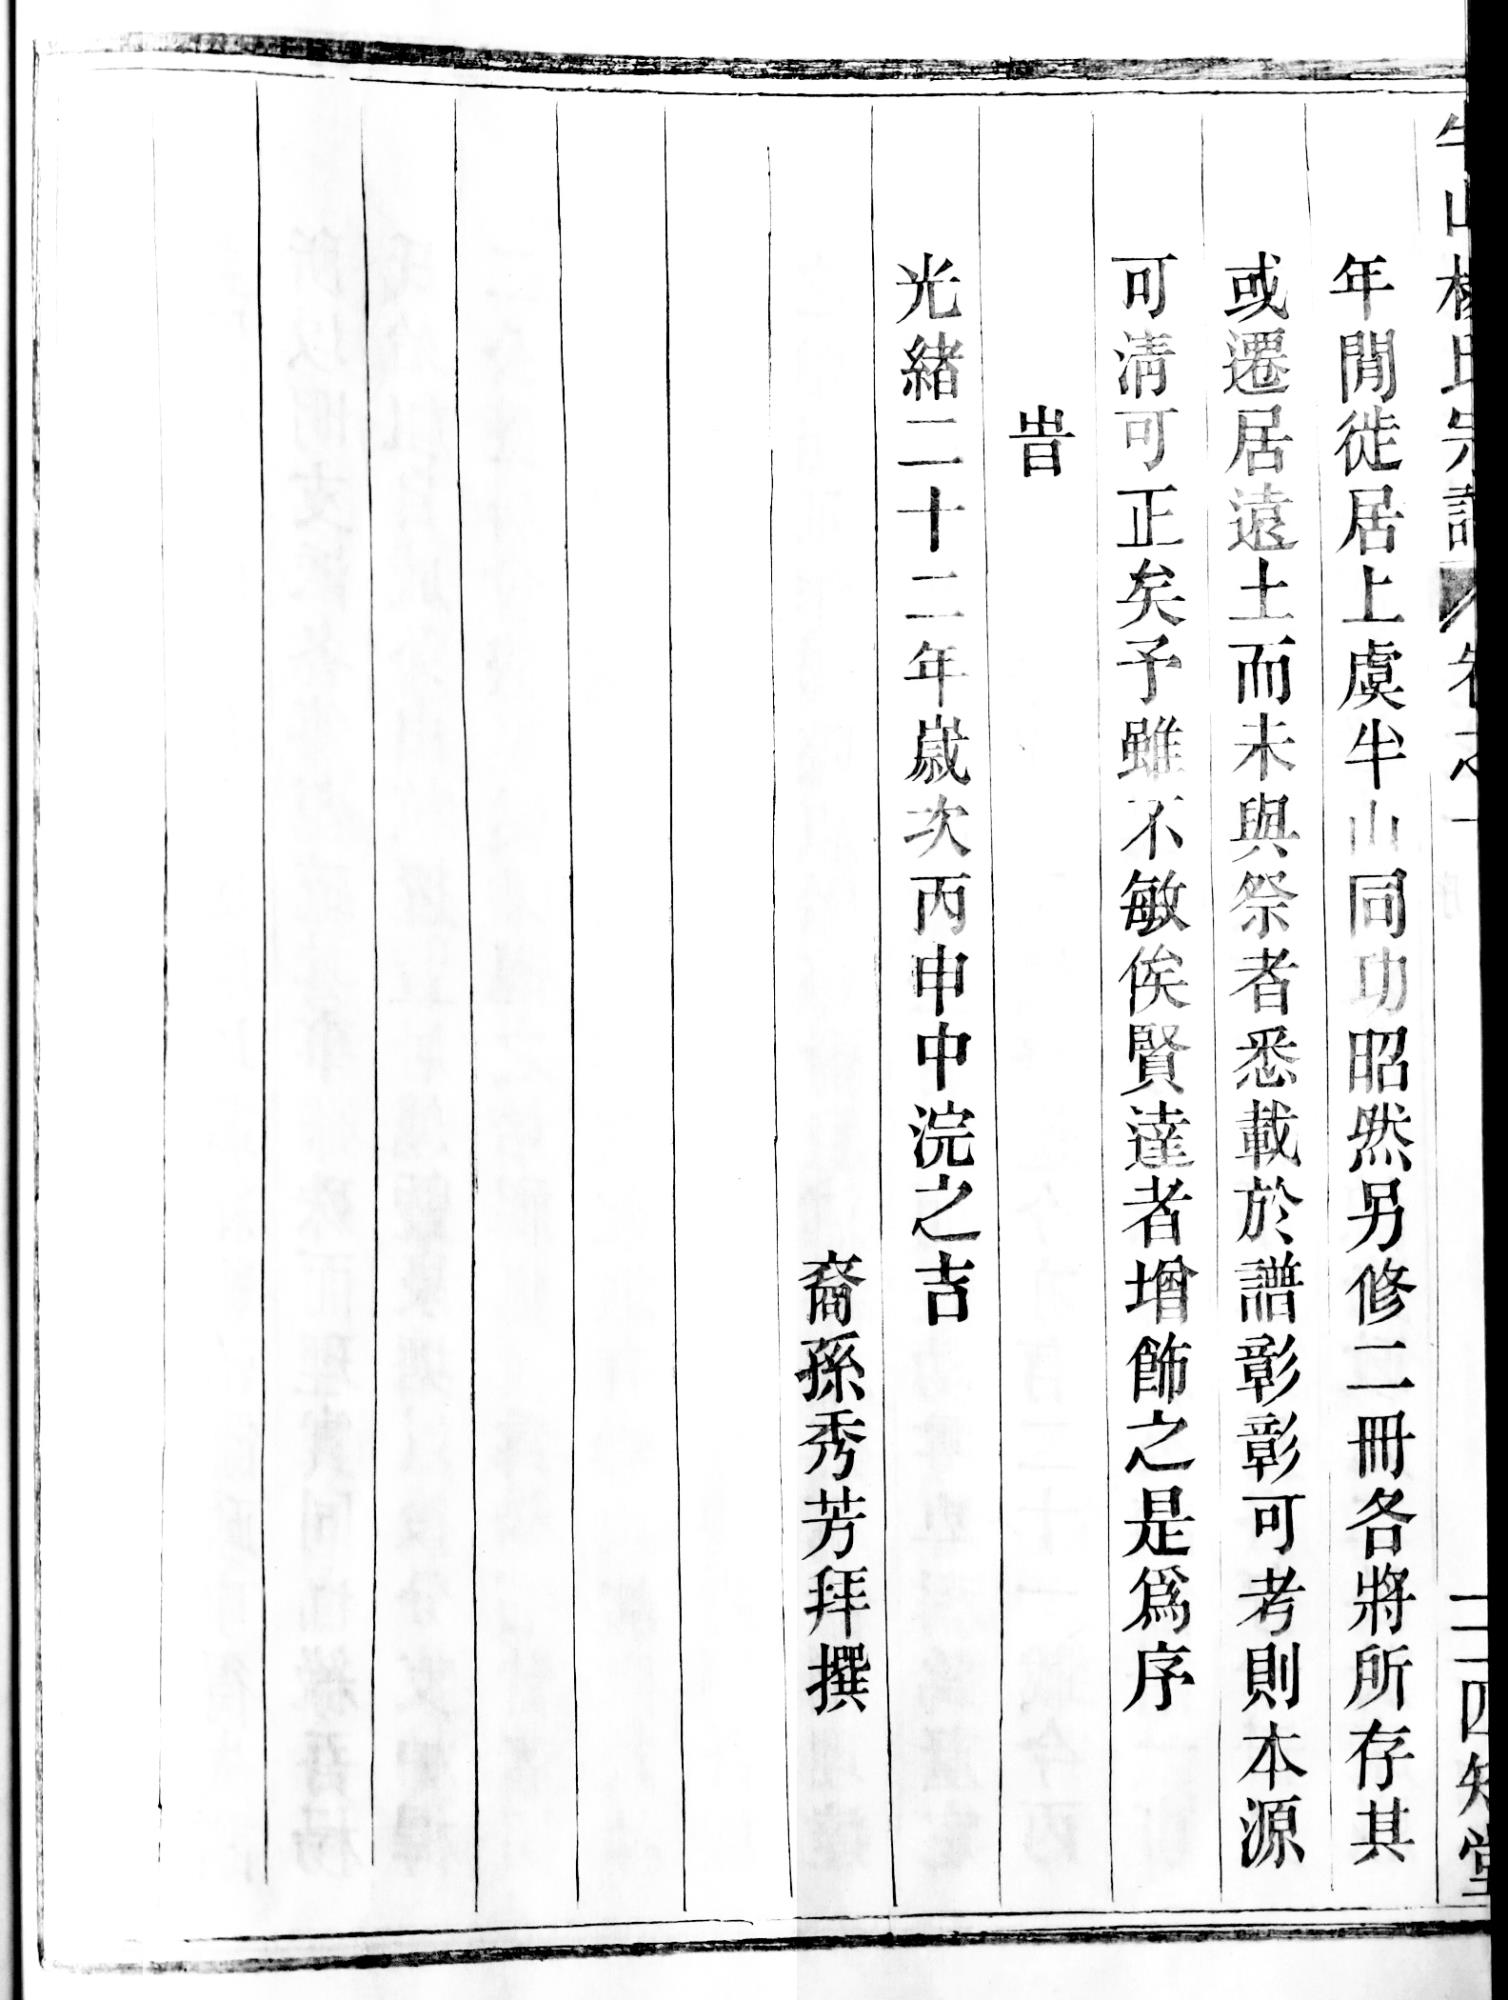 山楊氏宗譜 卷之一 二 四知堂
年閒徙居上虞半山同功昭然另修二冊各將所存其
或遷居遠土而未與祭者悉載於譜彰彰可考則本源
可清可正矣予雖不敏俟賢達者增飾之是爲序
旹
光緒二十二年歲次丙申中浣之吉
裔孫秀芳拜撰